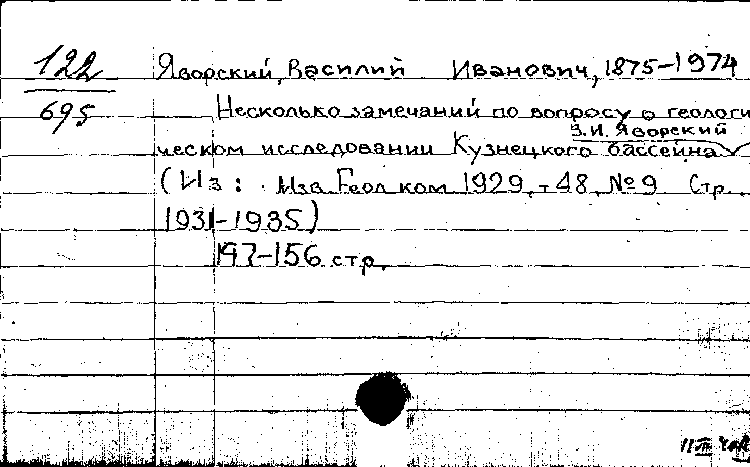 122
695
Яворский, Василий Иванович, 1875-1974
Несколько замечаний по вопросу о геологи
ческом исследовании Кузнецкого бассейна
В.И. Яворский
(Из: Изв. Геол ком 1929, т 48, №9 Стр.
1931-1935)
197-156 стр.